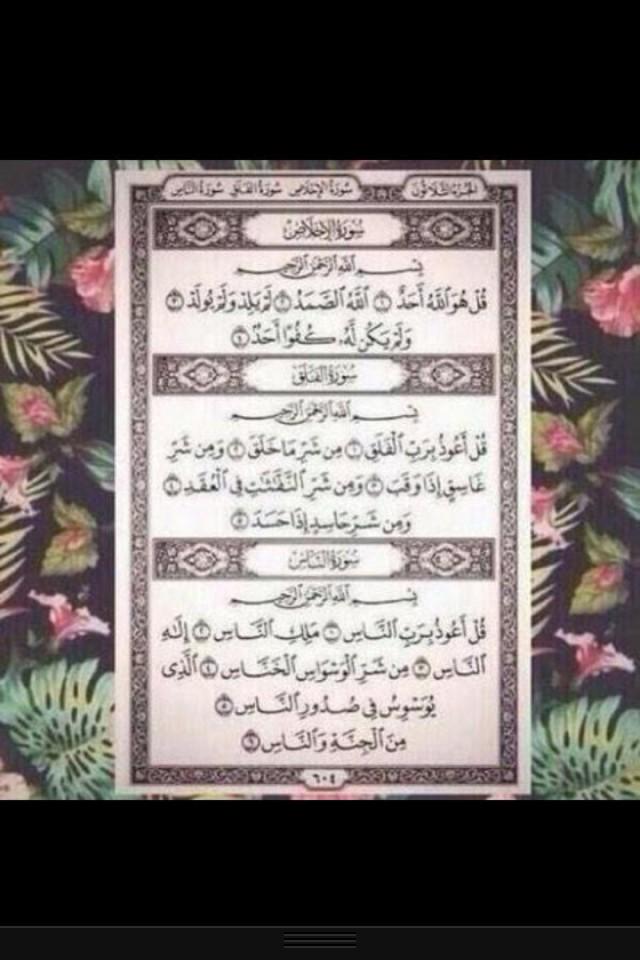 الجزء الثلاثون سورة الإخلاص سورة الفلق سورة الناس
سورة الإخلاص
بسم الله الرحمن الرحيم
قُلْ هُوَ ٱللَّهُ أَحَدٌ ١ ٱللَّهُ ٱلصَّمَدُ ٢ لَمْ يَلِدْ وَلَمْ يُولَدْ ٣
وَلَمْ يَكُن لَّهُۥ كُفُوًا أَحَدٌۢ ٤
سورة الفلق
بسم الله الرحمن الرحيم
قُلْ أَعُوذُ بِرَبِّ ٱلْفَلَقِ ١ مِن شَرِّ مَا خَلَقَ ٢ وَمِن شَرِّ
غَاسِقٍ إِذَا وَقَبَ ٣ وَمِن شَرِّ ٱلنَّفَّٰثَٰتِ فِى ٱلْعُقَدِ ٤
وَمِن شَرِّ حَاسِدٍ إِذَا حَسَدَ ٥
سورة الناس
بسم الله الرحمن الرحيم
قُلْ أَعُوذُ بِرَبِّ ٱلنَّاسِ ١ مَلِكِ ٱلنَّاسِ ٢ إِلَٰهِ
ٱلنَّاسِ ٣ مِن شَرِّ ٱلْوَسْوَاسِ ٱلْخَنَّاسِ ٤ ٱلَّذِى
يُوَسْوِسُ فِى صُدُورِ ٱلنَّاسِ ٥
مِنَ ٱلْجِنَّةِ وَٱلنَّاسِ ٦
٦٠٤